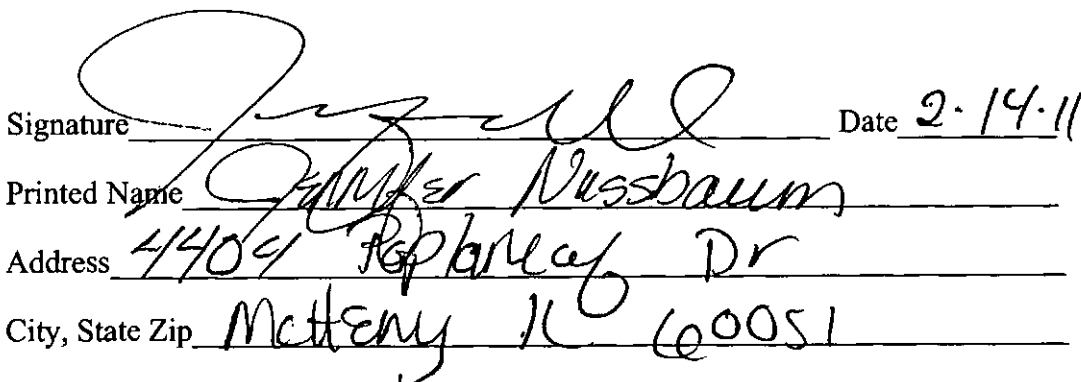 Signature Date 2.14.11
Printed Name Jennifer Nussbaum
Address 4404 Dr
City, State Zip McHenry IL 60051